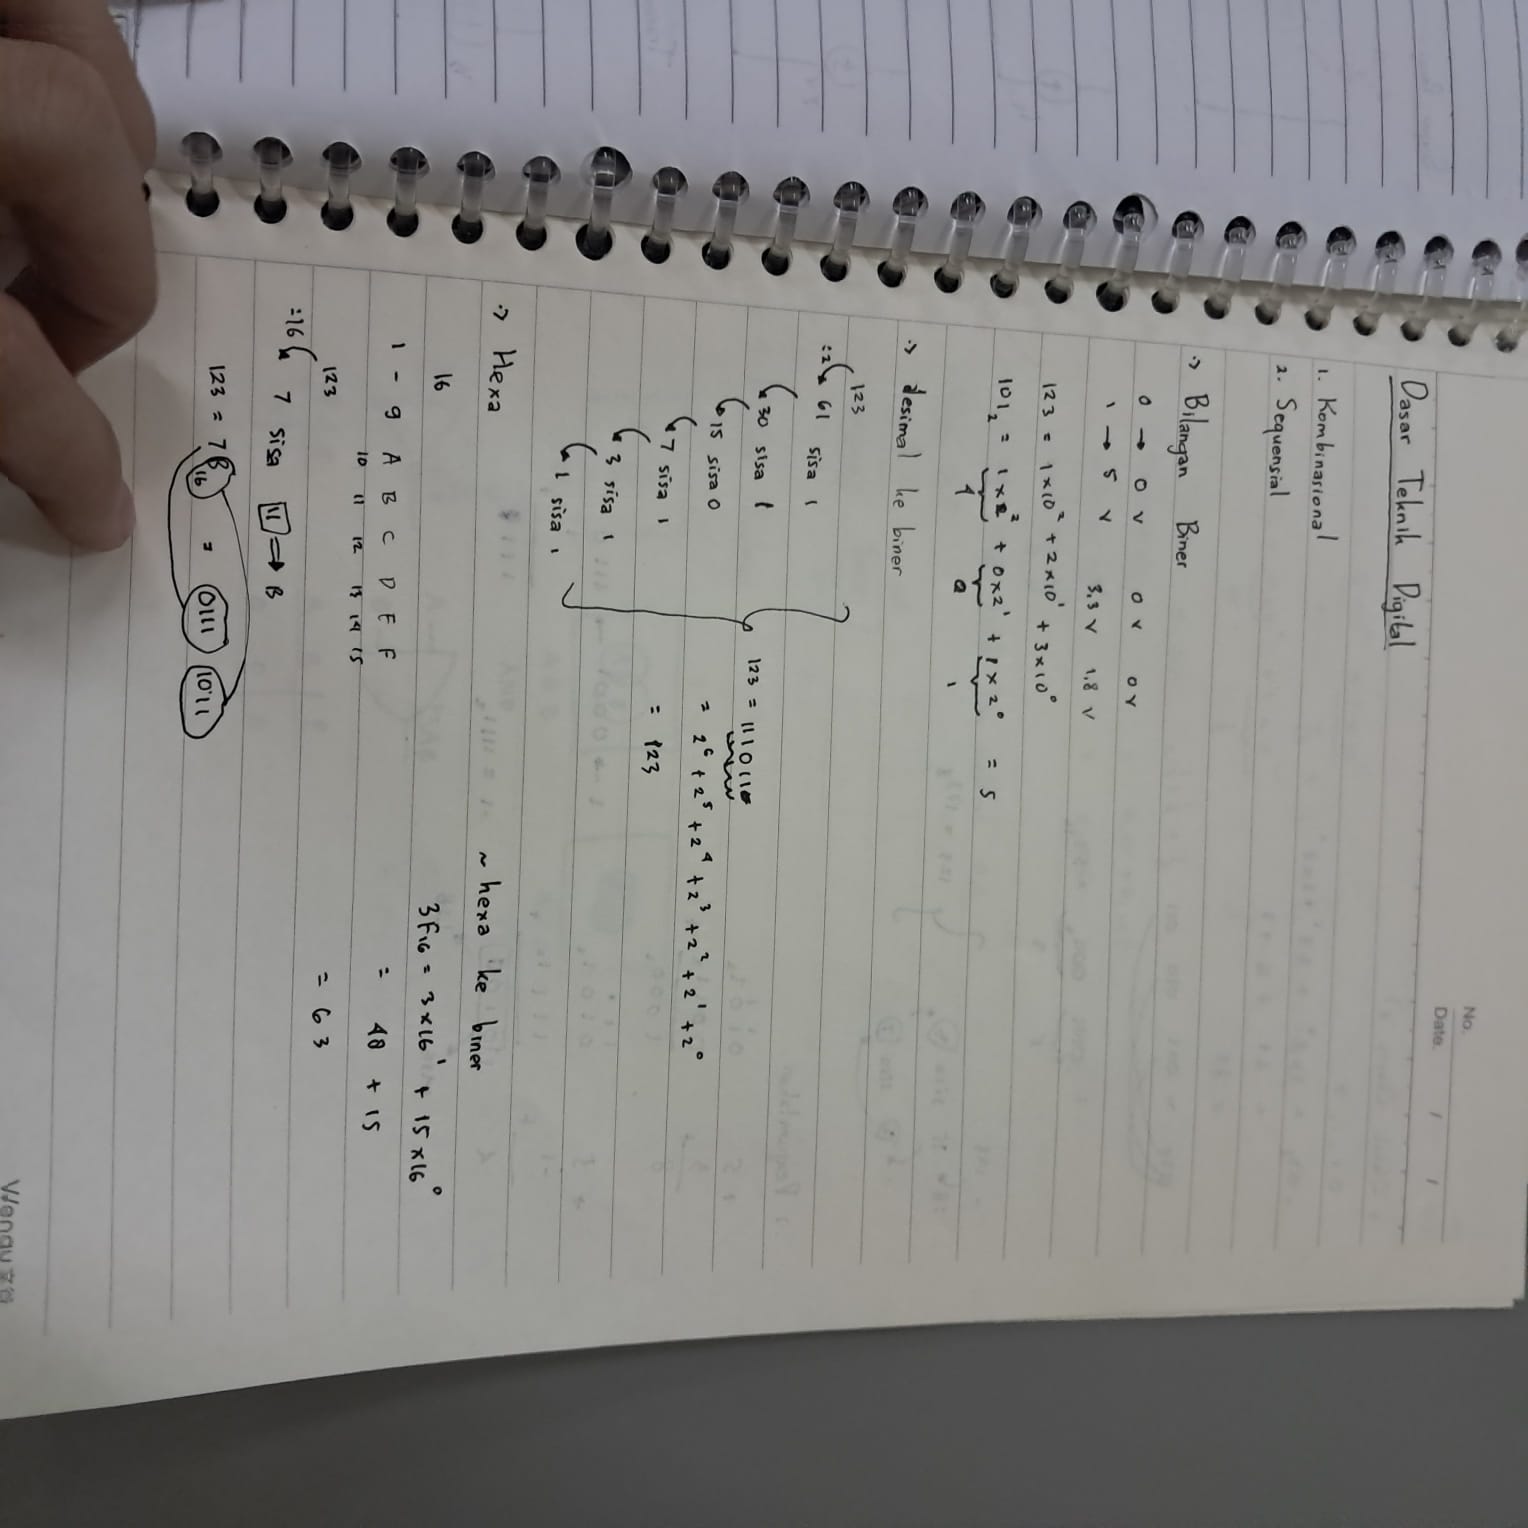 No.
Date. / /
Dasar Teknik Digital
1. Kombinasional
2. Sequensial
-> Bilangan Biner
0 → 0 V 0 V 0 V
1 → 5 V 3.3 V 1.8 V
123 = 1×10² + 2×10¹ + 3×10⁰
101₂ = 1×2² + 0×2¹ + 1×2⁰ = 5
4 0 1
-> desimal ke biner
123
:2 61 sisa 1
30 sisa 1
15 sisa 0
7 sisa 1
3 sisa 1
1 sisa 1
123 = 111011
= 2⁶ + 2⁵ + 2⁴ + 2³ + 2² + 2¹ + 2⁰
= 123
-> Hexa
16
1 - 9 A B C D E F
10 11 12 13 14 15
123
=16 7 sisa 11 → B
123 = 7B₁₆ = 0111 1011
~ hexa ke biner
3F₁₆ = 3×16¹ + 15×16⁰
= 48 + 15
= 63